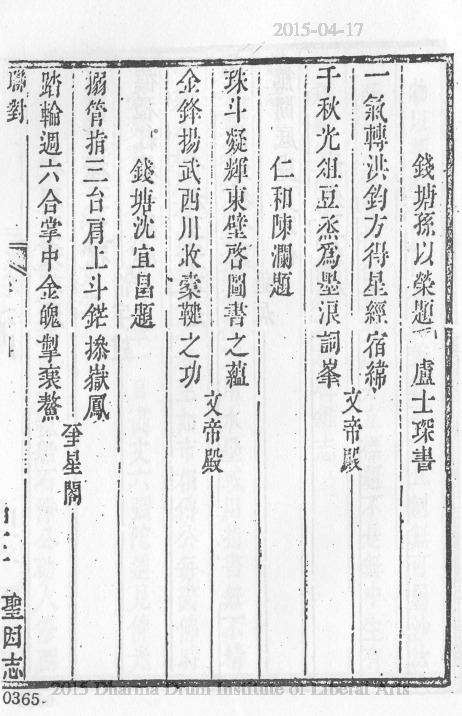 2015-04-17
錢塘孫以榮題 盧士琛書
一氣轉洪鈞方得星經宿緯 文帝殿
千秋光俎豆烝爲墨浪詞峯
仁和陳瀾題
珠斗凝輝東壁啓圖書之蘊 文帝殿
金鋒揚武西川收橐鞬之功
錢塘沈宜昌題
搦管指三台肩上斗鋩摻嶽鳳 奎星閣
踏輪週六合掌中金魄掣褒鰲
聯對
聖因志
0365
2015 Dharma Drum Institute of Liberal Arts